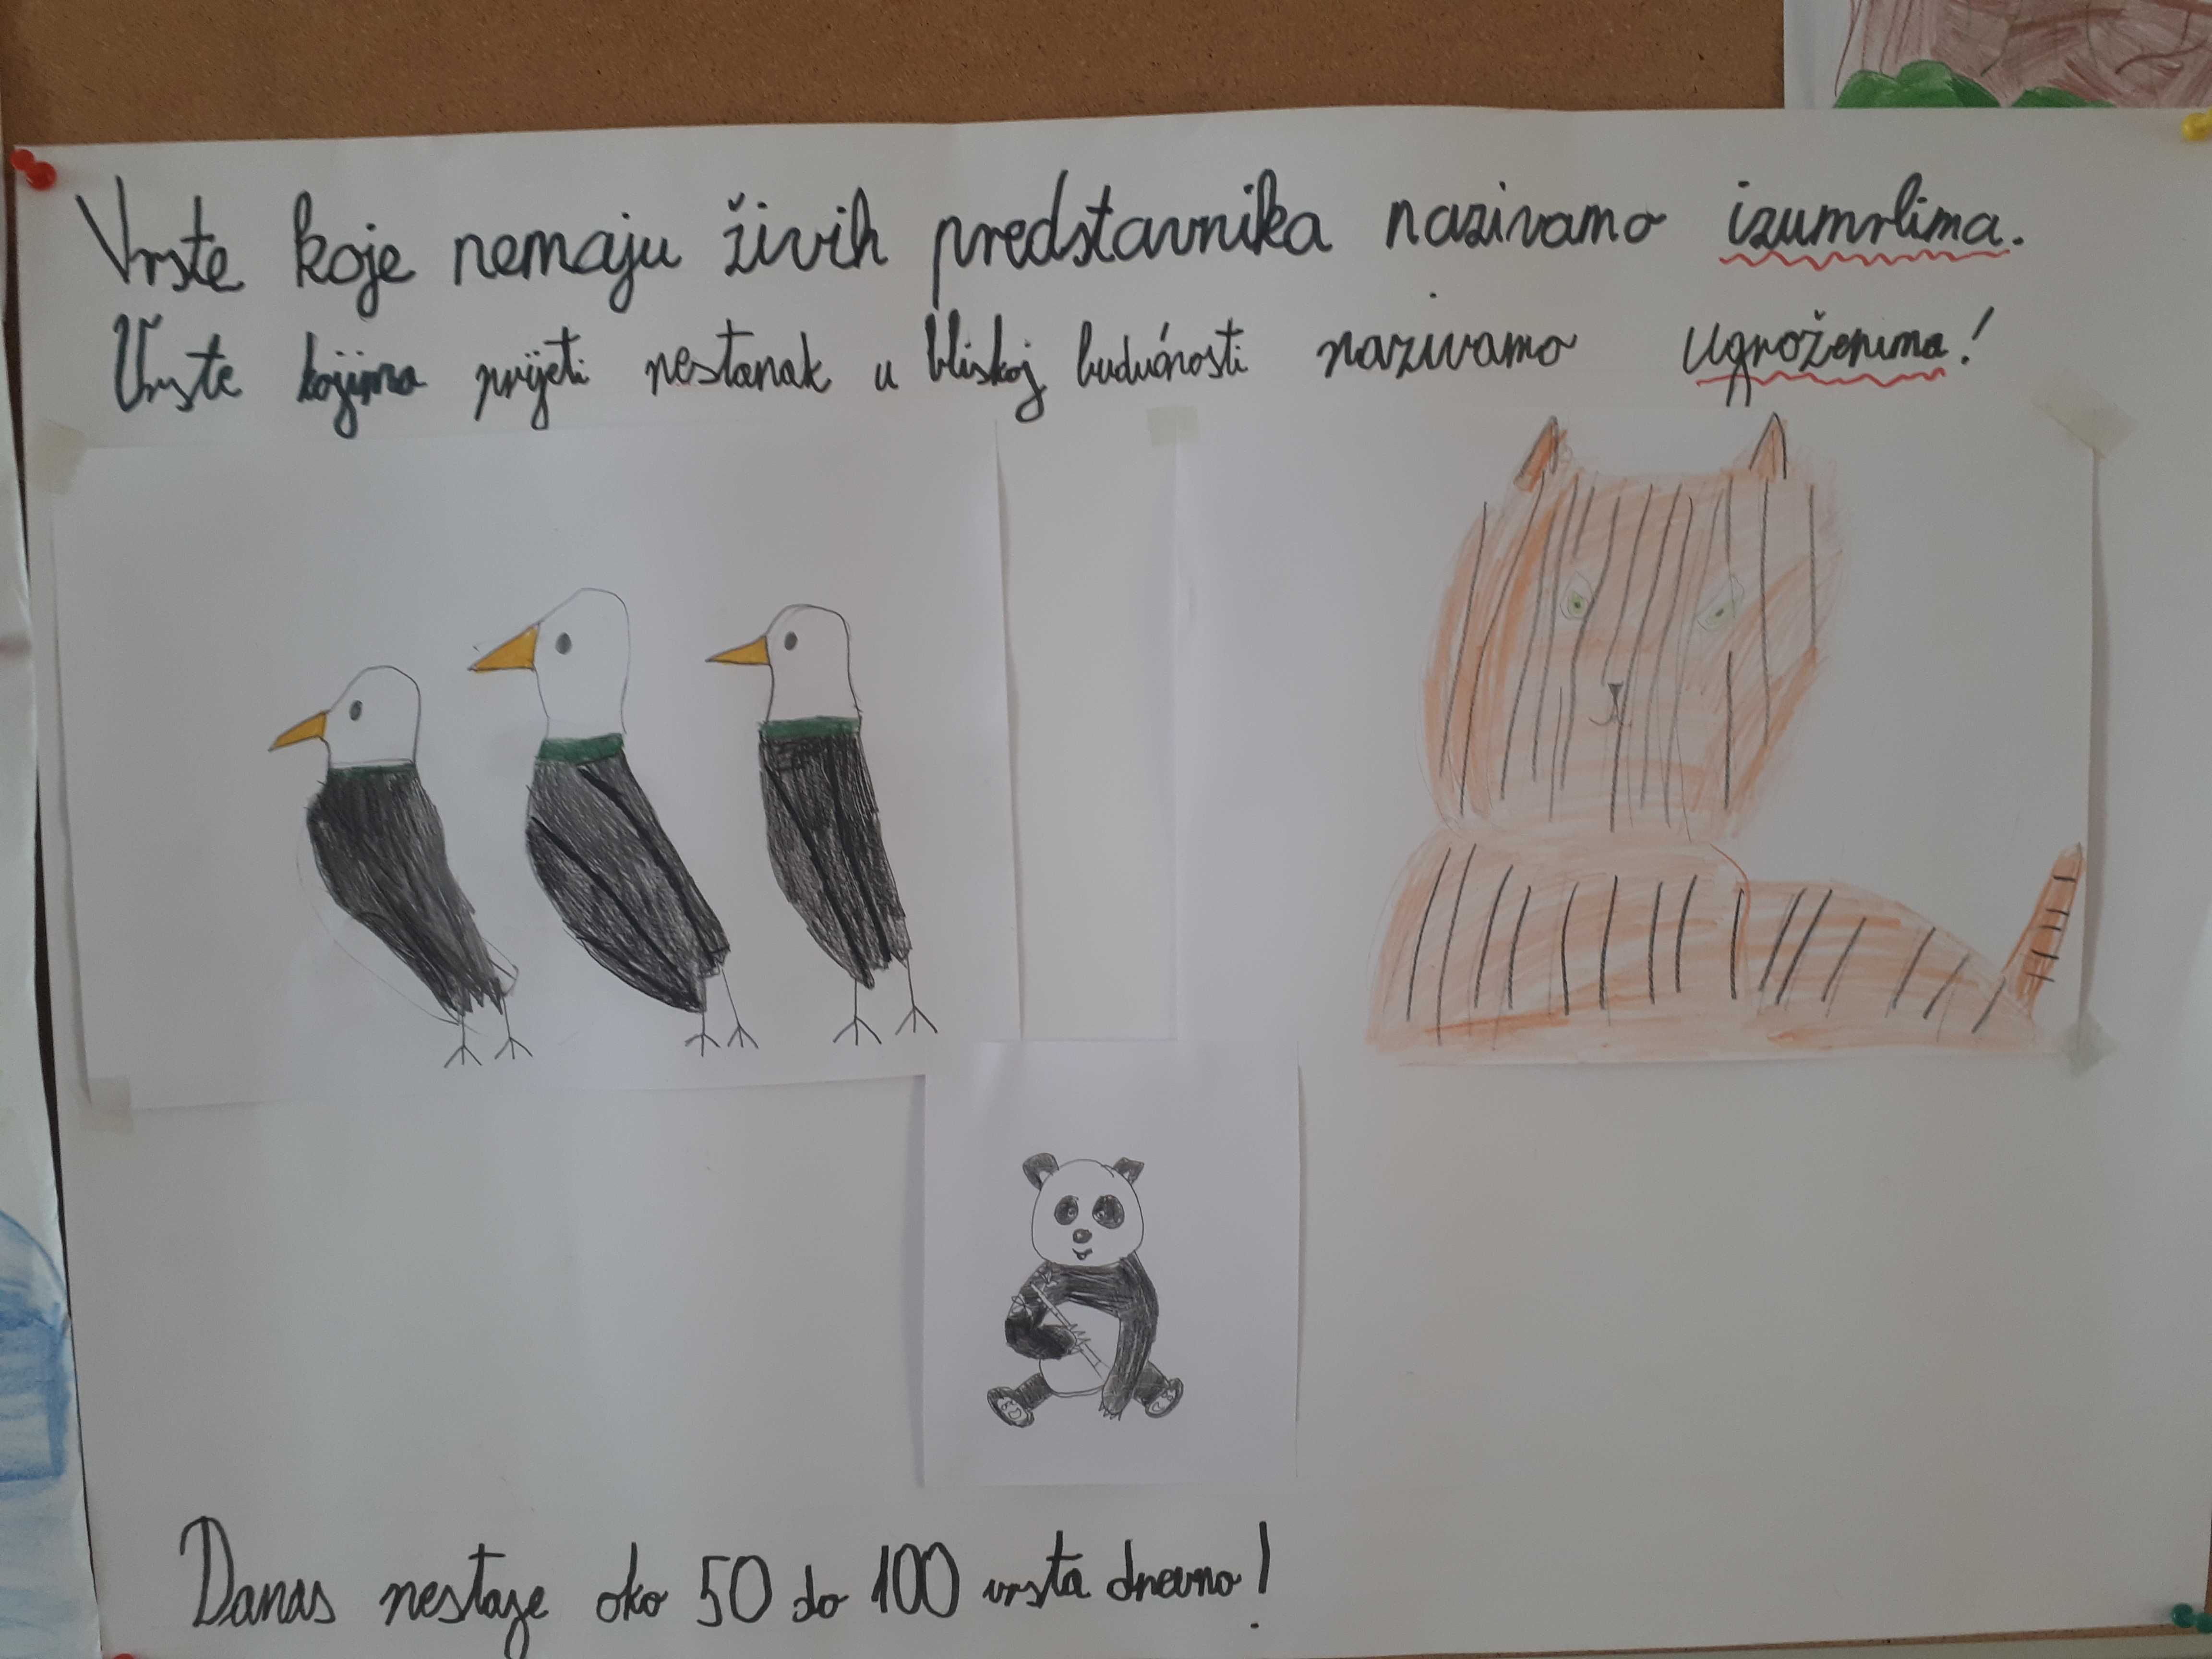 Vrste koje nemaju živih predstavnika nazivamo izumrlima.
Vrste kojima prijeti nestanak u bliskoj budućnosti nazivamo ugroženima!
Danas nestaje oko 50 do 100 vrsta dnevno!